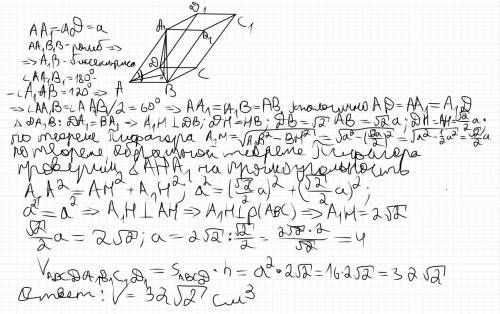 AA₁=A₁D=a
AA₁B₁B-ромб ⇒
⇒ A₁B-биссектриса
∠AA₁B₁=180°-
-∠A₁AB=120° ⇒
D₁ C₁ A₁ B₁ D C H A B
⇒ ∠AA₁B=∠AA₁B₁/2=60° ⇒ AA₁=A₁B=AB, аналогично AD=AA₁=A₁D
△DA₁B: DA₁=BA₁ ⇒ A₁H⊥DB; DH=HB; DB=√2 AB=√2a; DH=AH=√2/2 a.
по теореме Пифагора A₁H=√(A₁B²-BH²)=√(a²-(√2/2 a)²)=√(a²-1/2a²)=√2/2 a
по теореме обратной теореме Пифагора
проверим △AHA₁ на прямоугольность
A₁A²=AH²+A₁H²; a²=(√2/2 a)²+(√2/2 a)²;
a²=a² ⇒ A₁H⊥AH ⇒ A₁H⊥p(ABC) ⇒ A₁H=2√2
√2/2 a=2√2; a=2√2:√2/2=2√2·2/√2=4
V_ABCDA₁B₁C₁D₁=S_ABCD·h=a²·2√2=16·2√2=32√2
Ответ: V=32√2 см³